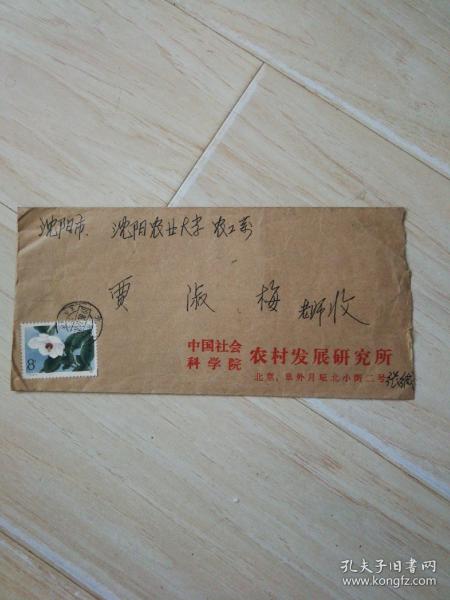 沈阳市 沈阳农业大学 农工系
贾淑梅 老师收
8
中国社会科学院 农村发展研究所
北京，阜外月坛北小街二号
孔夫子旧书网
www.kongfz.com